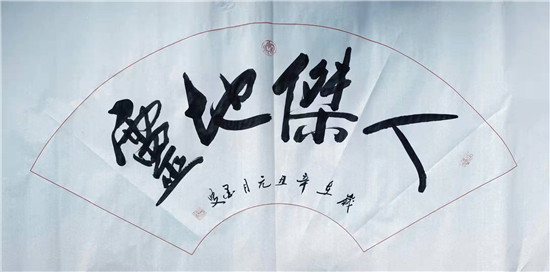 人傑地靈
歲在辛丑元月